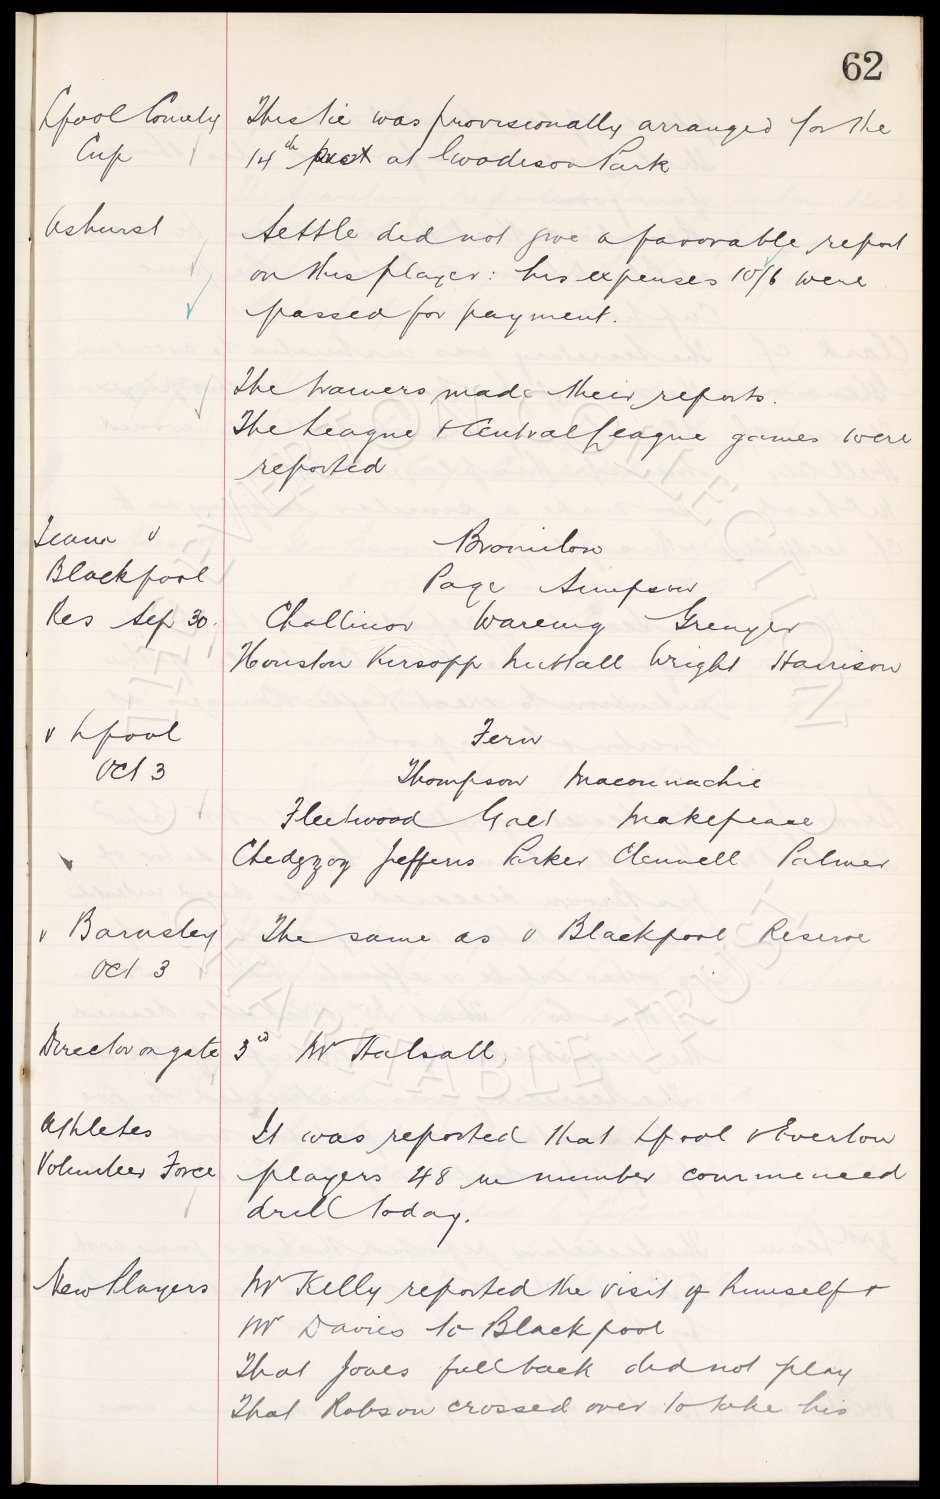 62
Lpool County
Cup
This tie was provisionally arranged for the
14th at Goodison Park
Ashurst
Settle did not give a favorable report
on this player: his expenses 10/6 were
passed for payment.
The trainers made their reports.
The League & Central League games were
reported
Team v
Blackpool
Res Sep 30.
Bromilow
Page Simpson
Challinor Wareing Grenyer
Houston Kirsopp Nuttall Wright Harrison
v Lpool
Oct 3
Fern
Thompson Maconnachie
Fleetwood Galt Makepeace
Chedgzoy Jefferis Parker Clennell Palmer
v Barnsley
Oct 3
The same as v Blackpool Reserve
Director on gate
3rd Mr Halsall.
Athletes
Volunteer Force
It was reported that Lpool & Everton
players 48 in number commenced
drill today.
New Players
Mr Kelly reported the visit of himself &
Mr Davies to Blackpool
That Jones full back did not play
That Robson crossed over to take his
THE EVERTON COLLECTION
CHARITABLE TRUST